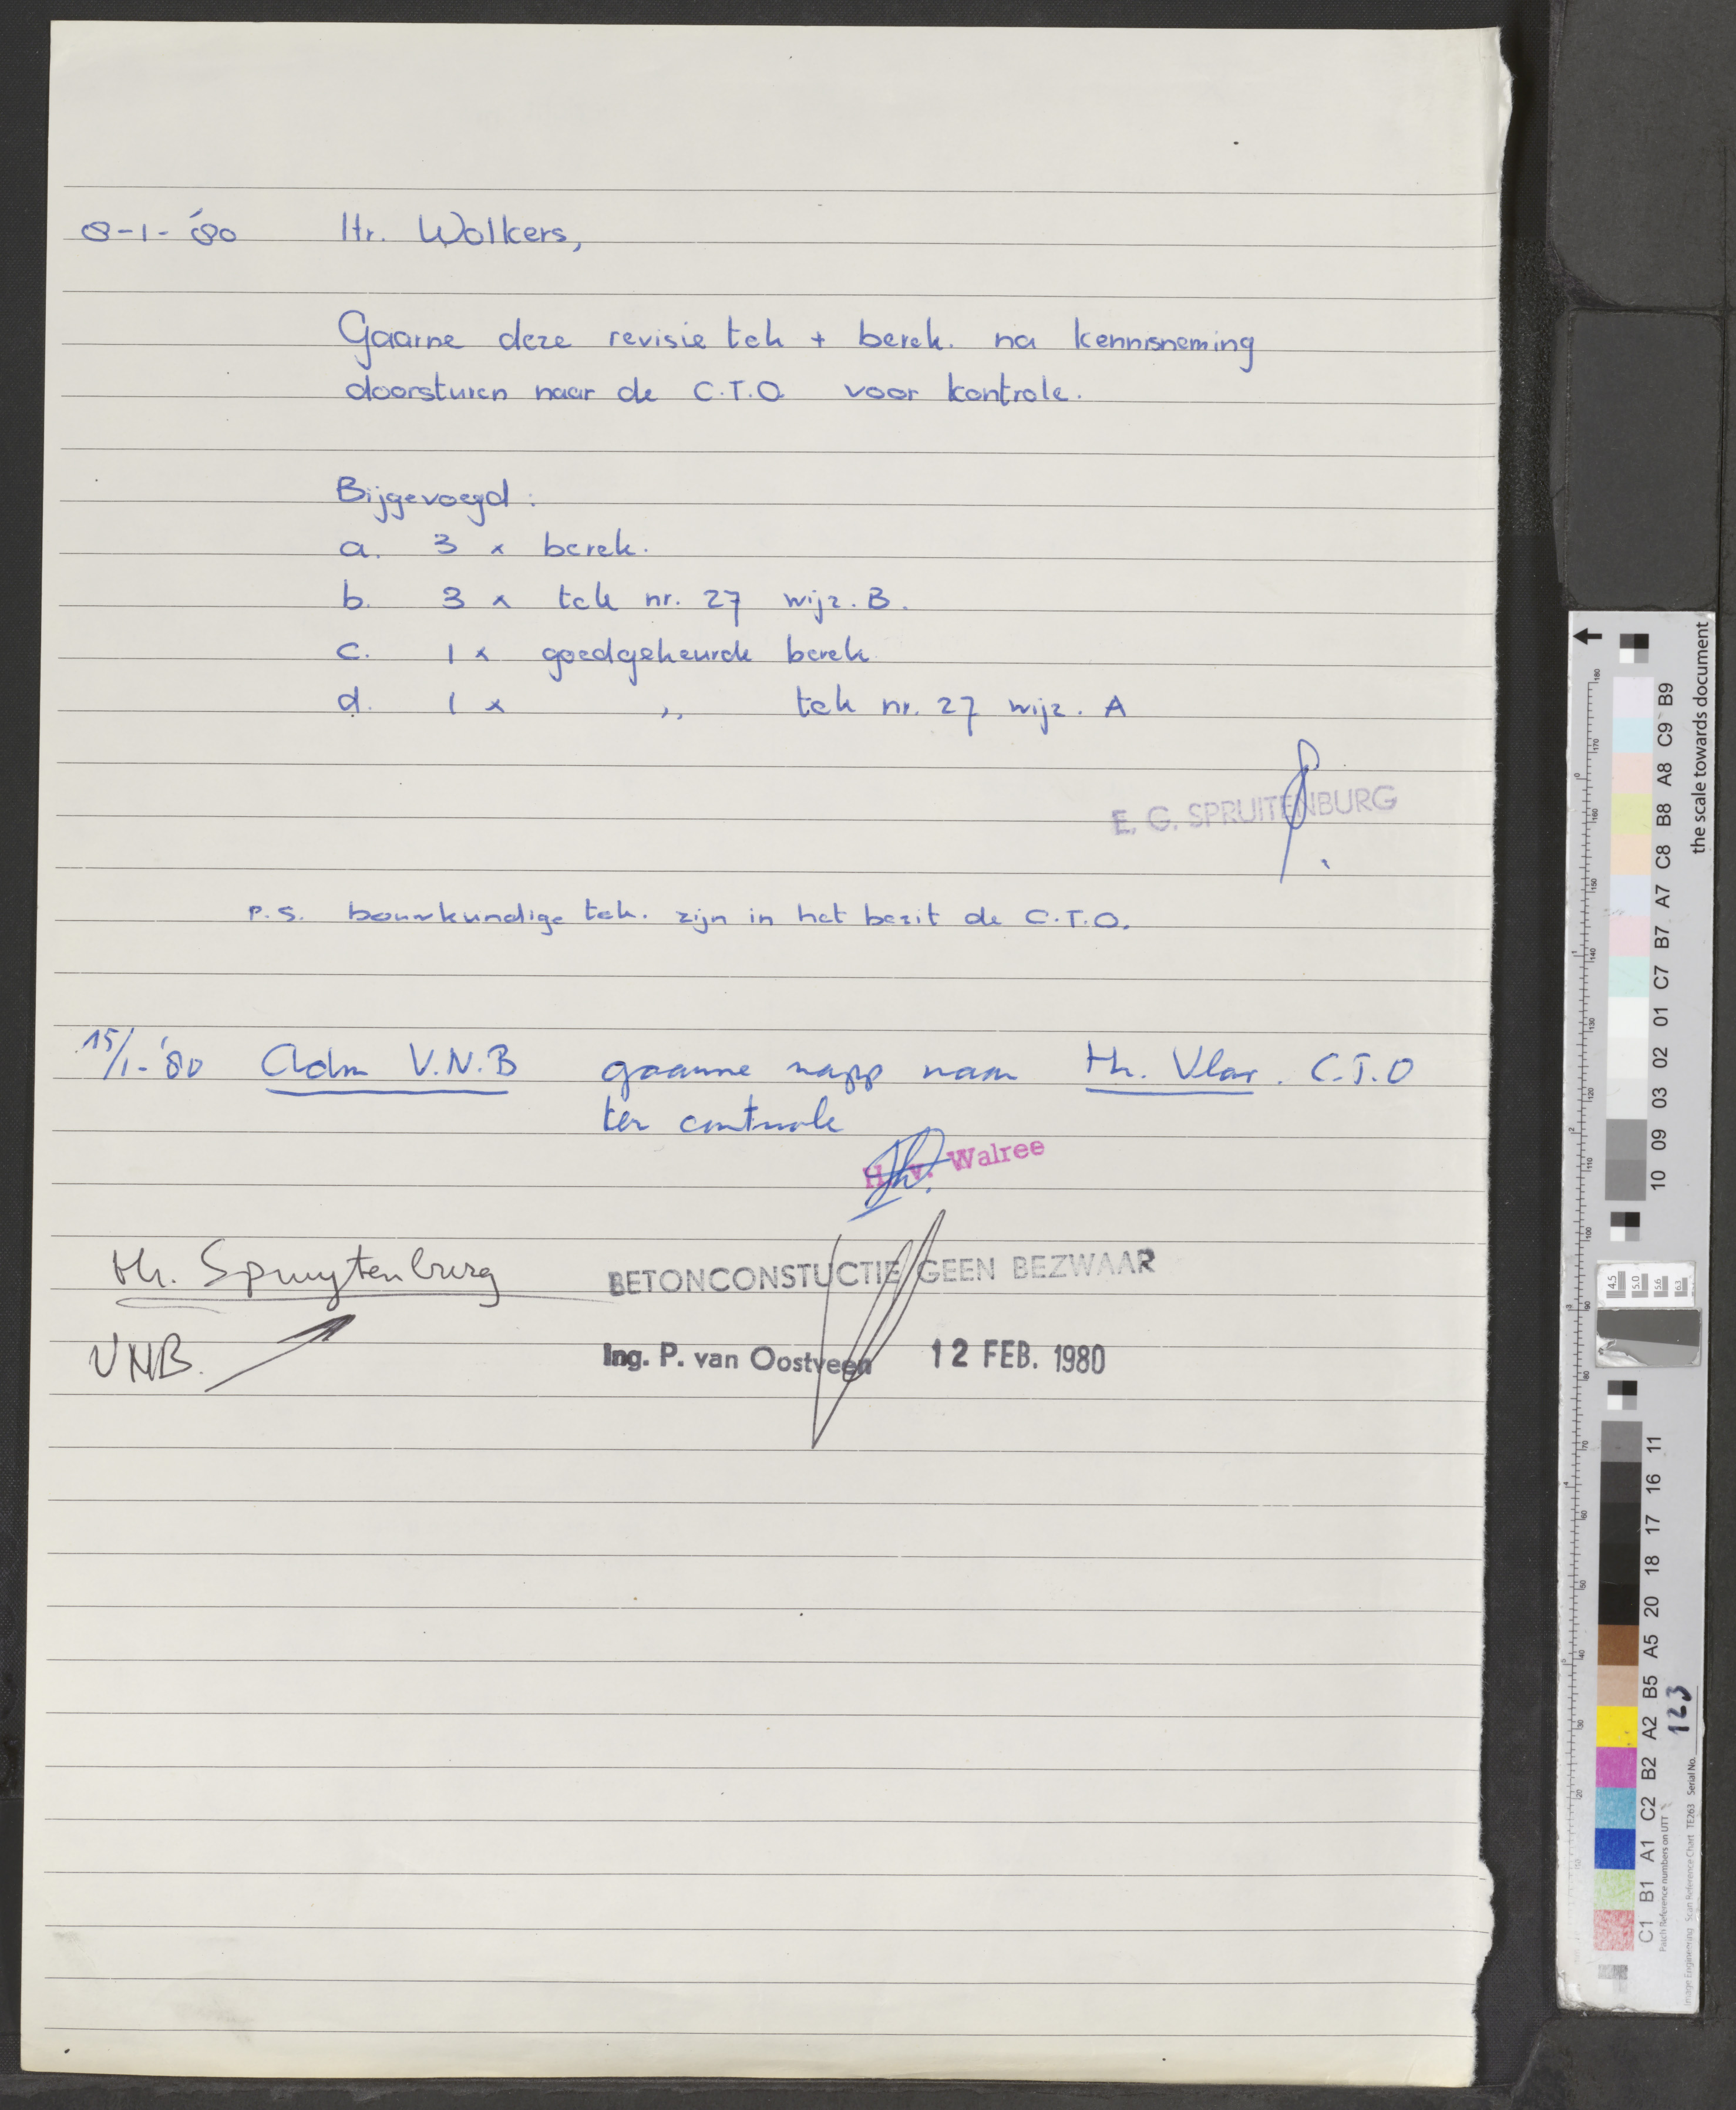 8-1-'80 Hr. Wolkers,
Gaarne deze revisie tek + berek. na kennisneming
doorsturen naar de C.T.O. voor kontrole.
Bijgevoegd :
a. 3 x berek.
b. 3 x tek nr. 27 wijz. B.
c. 1 x goedgekeurde berek
d. 1 x ,, tek nr. 27 wijz. A
E. G. SPRUITENBURG
p.s. bouwkundige tek. zijn in het bezit de C.T.O.
15/1-'80 Adm V.N.B gaarne mapp naar Hr. Vlar. C.T.O
ter controle
H. v. Walree
Hr. Spruytenburg
BETONCONSTUCTIE GEEN BEZWAAR
VNB.
Ing. P. van Oostveen 12 FEB. 1980
the scale towards document
B9 C9 A8 B8 C8 A7 B7 C7 01 02 03 09 10
11 16 17 18 20 A5 B5 A2 B2 C2 A1 B1 C1
Patch Reference numbers on UTT
Image Engineering Scan Reference Chart TE263 Serial No. 123